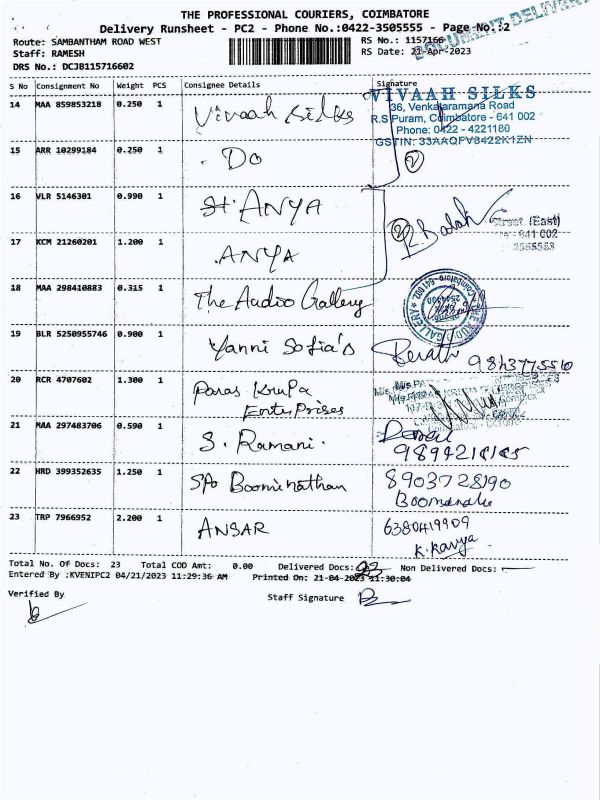 THE PROFESSIONAL COURIERS, COIMBATORE
Delivery Runsheet - PC2 - Phone No.:0422-3505555 - Page No.:2
DOCUMENT DELIVERY
Route: SAMBANTHAM ROAD WEST RS No.: 1157166
Staff: RAMESH RS Date: 21-Apr-2023
DRS No.: DCJB115716602
S No Consignment No Weight PCS Consignee Details Signature
14 MAA 859853218 0.250 1 Vivaah Silks
VIVAAH SILKS
36, Venkataramana Road
R.S Puram, Coimbatore - 641 002
Phone: 0422 - 4221180
GSTIN: 33AAQFV8422K1ZN
15 ARR 10299184 0.250 1 Do
2
16 VLR 5146301 0.990 1 St. ANYA
Street, (East)
641 002
2
17 KCM 21260201 1.200 1 ANYA
18 MAA 298410883 0.315 1 The Audio Gallery
19 BLR 5250955746 0.900 1 Yanni Sofia's
20 RCR 4707602 1.300 1 Paras Krupa
Enterprises
21 MAA 297483706 0.590 1 S. Ramani.
22 HRD 399352635 1.250 1 S/o Boominathan 8903728190
23 TRP 7966952 2.200 1 ANSAR 6380419909
K. Kavya
Total No. Of Docs: 23 Total COD Amt: 0.00 Delivered Docs: 23 Non Delivered Docs:
Entered By :KVENIPC2 04/21/2023 11:29:36 AM Printed On: 21-04-2023 11:30:04
Verified By Staff Signature